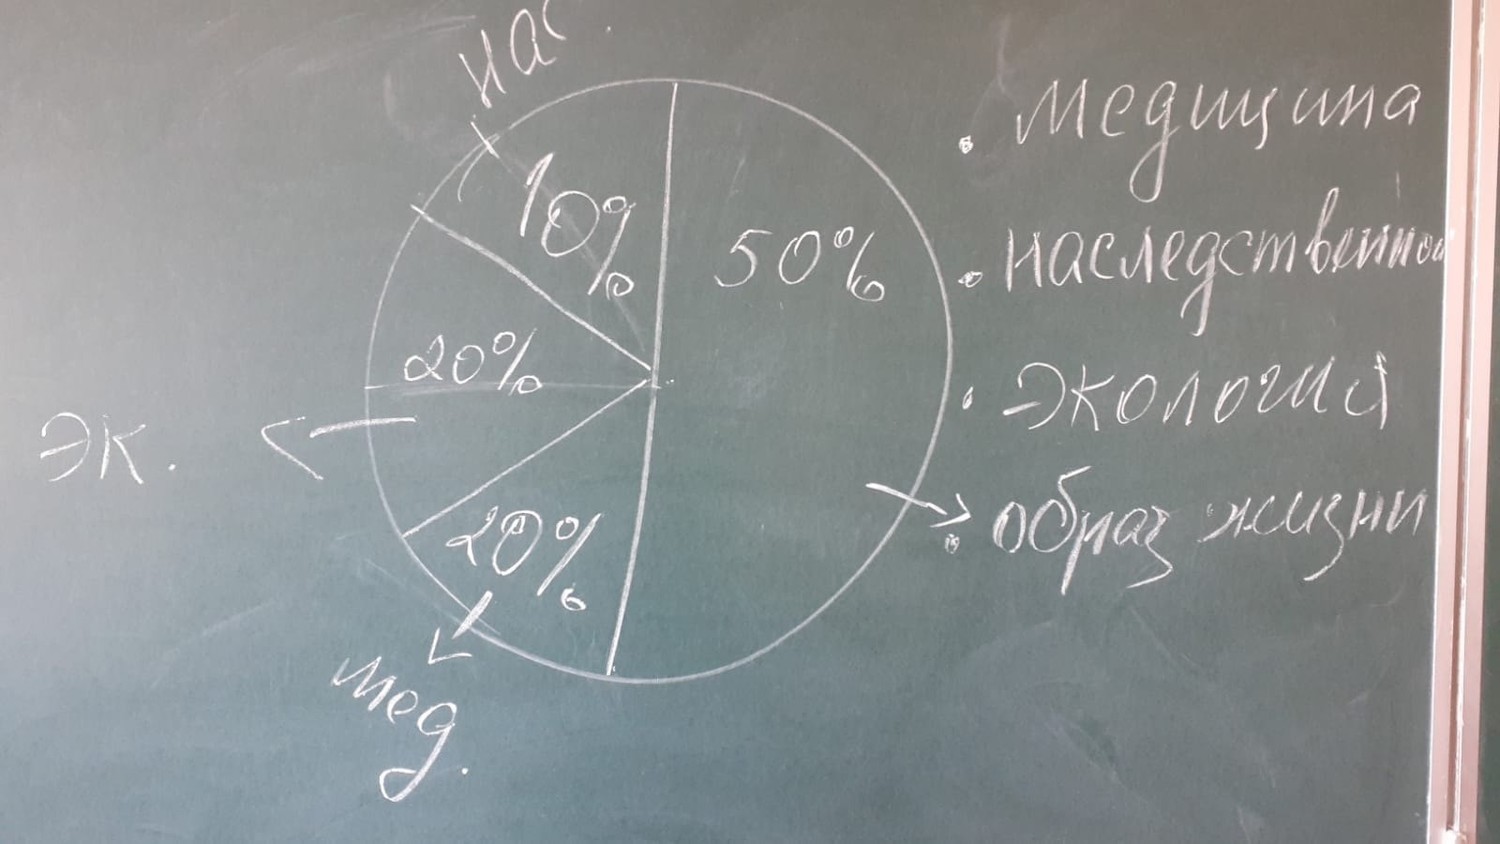 нас.
10%
50%
20%
эк.
20%
мед.
• медицина
• наследственной
• экология
• образ жизни